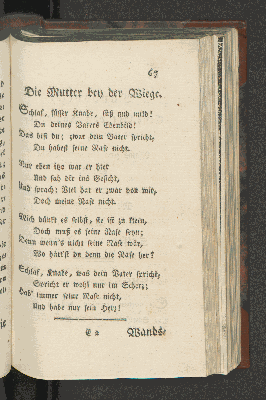 67
Die Mutter bey der Wiege.
Schlaf, süsser Knabe, süß und mild!
Du deines Vaters Ebenbild!
Das bist du; zwar dein Vater spricht,
Du habest seine Nase nicht.
Nur eben itzt war er hier
Und sah dir ins Gesicht,
Und sprach: Viel hat er zwar von mir,
Doch meine Nase nicht.
Mich dünkt es selbst, sie ist zu klein,
Doch muß es seine Nase seyn;
Denn wenn's nicht seine Nase wär,
Wo hätt'st du denn die Nase her?
Schlaf, Knabe, was dein Vater spricht,
Spricht er wohl nur im Scherz;
Hab' immer seine Nase nicht,
Und habe nur sein Herz!
E 2
Wands-